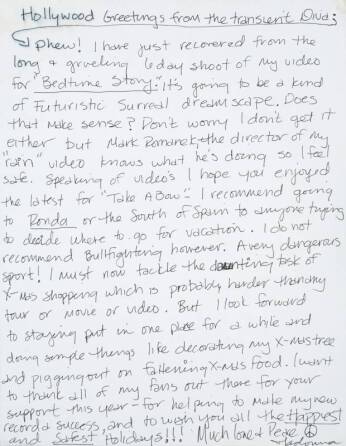 Hollywood Greetings from the transient Diva;
phew! I have just recovered from the
long & grueling 6 day shoot of my video
for "Bedtime Story." it's going to be a kind
of Futuristic Surreal dreamscape. Does
that make sense? Don't worry I don't get it
either but Mark Romanek, the director of my
"rain" video knows what he's doing so I feel
safe. Speaking of video's I hope you enjoyed
the latest for "Take A Bow." I recommend going
to Ronda or the South of Spain to anyone trying
to decide where to go for vacation. I do not
recommend Bullfighting however. A very dangerous
sport! I must now tackle the daunting task of
X-mas shopping which is probably harder than any
tour or movie or video. But I look forward
to staying put in one place for a while and
doing simple things like decorating my X-mas tree
and pigging out on fattening X-mas food. I want
to thank all of my fans out there for your
support this year - for helping to make my new
record a success, and to wish you all the Happiest
and safest Holidays!!! Much love & Peace
Madonna